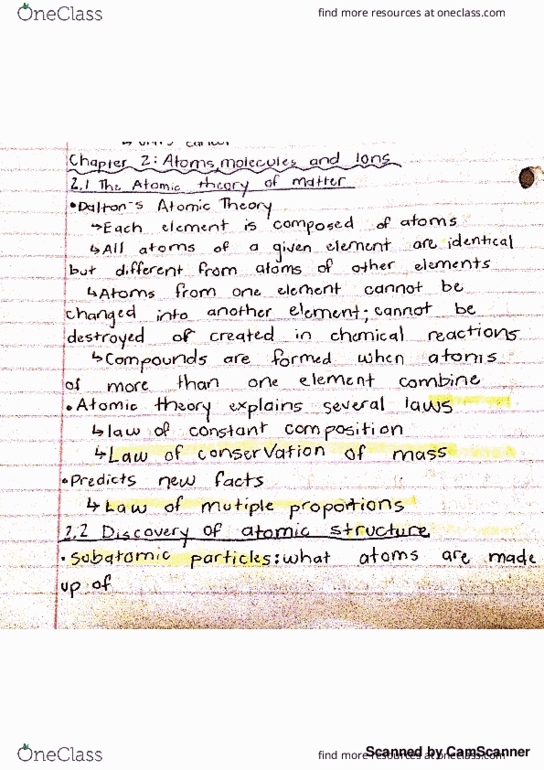 OneClass
find more resources at oneclass.com
Chapter 2: Atoms, molecules and Ions
2.1 The Atomic theory of matter
•Dalton's Atomic Theory
↳Each element is composed of atoms
↳All atoms of a given element are identical
but different from atoms of other elements
↳Atoms from one element cannot be
changed into another element; cannot be
destroyed or created in chemical reactions
↳Compounds are formed when atoms
of more than one element combine
•Atomic theory explains several laws
↳law of constant composition
↳Law of conservation of mass
•Predicts new facts
↳Law of mutiple proportions
2.2 Discovery of atomic structure
•subatomic particles: what atoms are made
up of
OneClass
find more resources at oneclass.com
Scanned by CamScanner